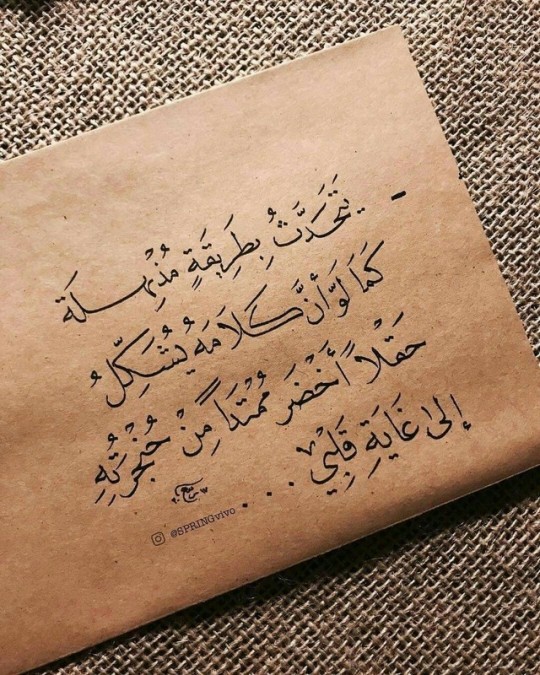 - يَتَحَدَّثُ بِطَرِيقَةٍ مُذْهِلَة
كَمَا لَوْ أَنَّ كَلَامَهُ يُشَكِّلُ
حَقْلاً أَخْضَرَ مُمْتَدًا مِنْ حُنْجُرَتِهِ
إلىٰ غَايَةِ قَلْبِي . . .
ربيع
@SPRINGvivo